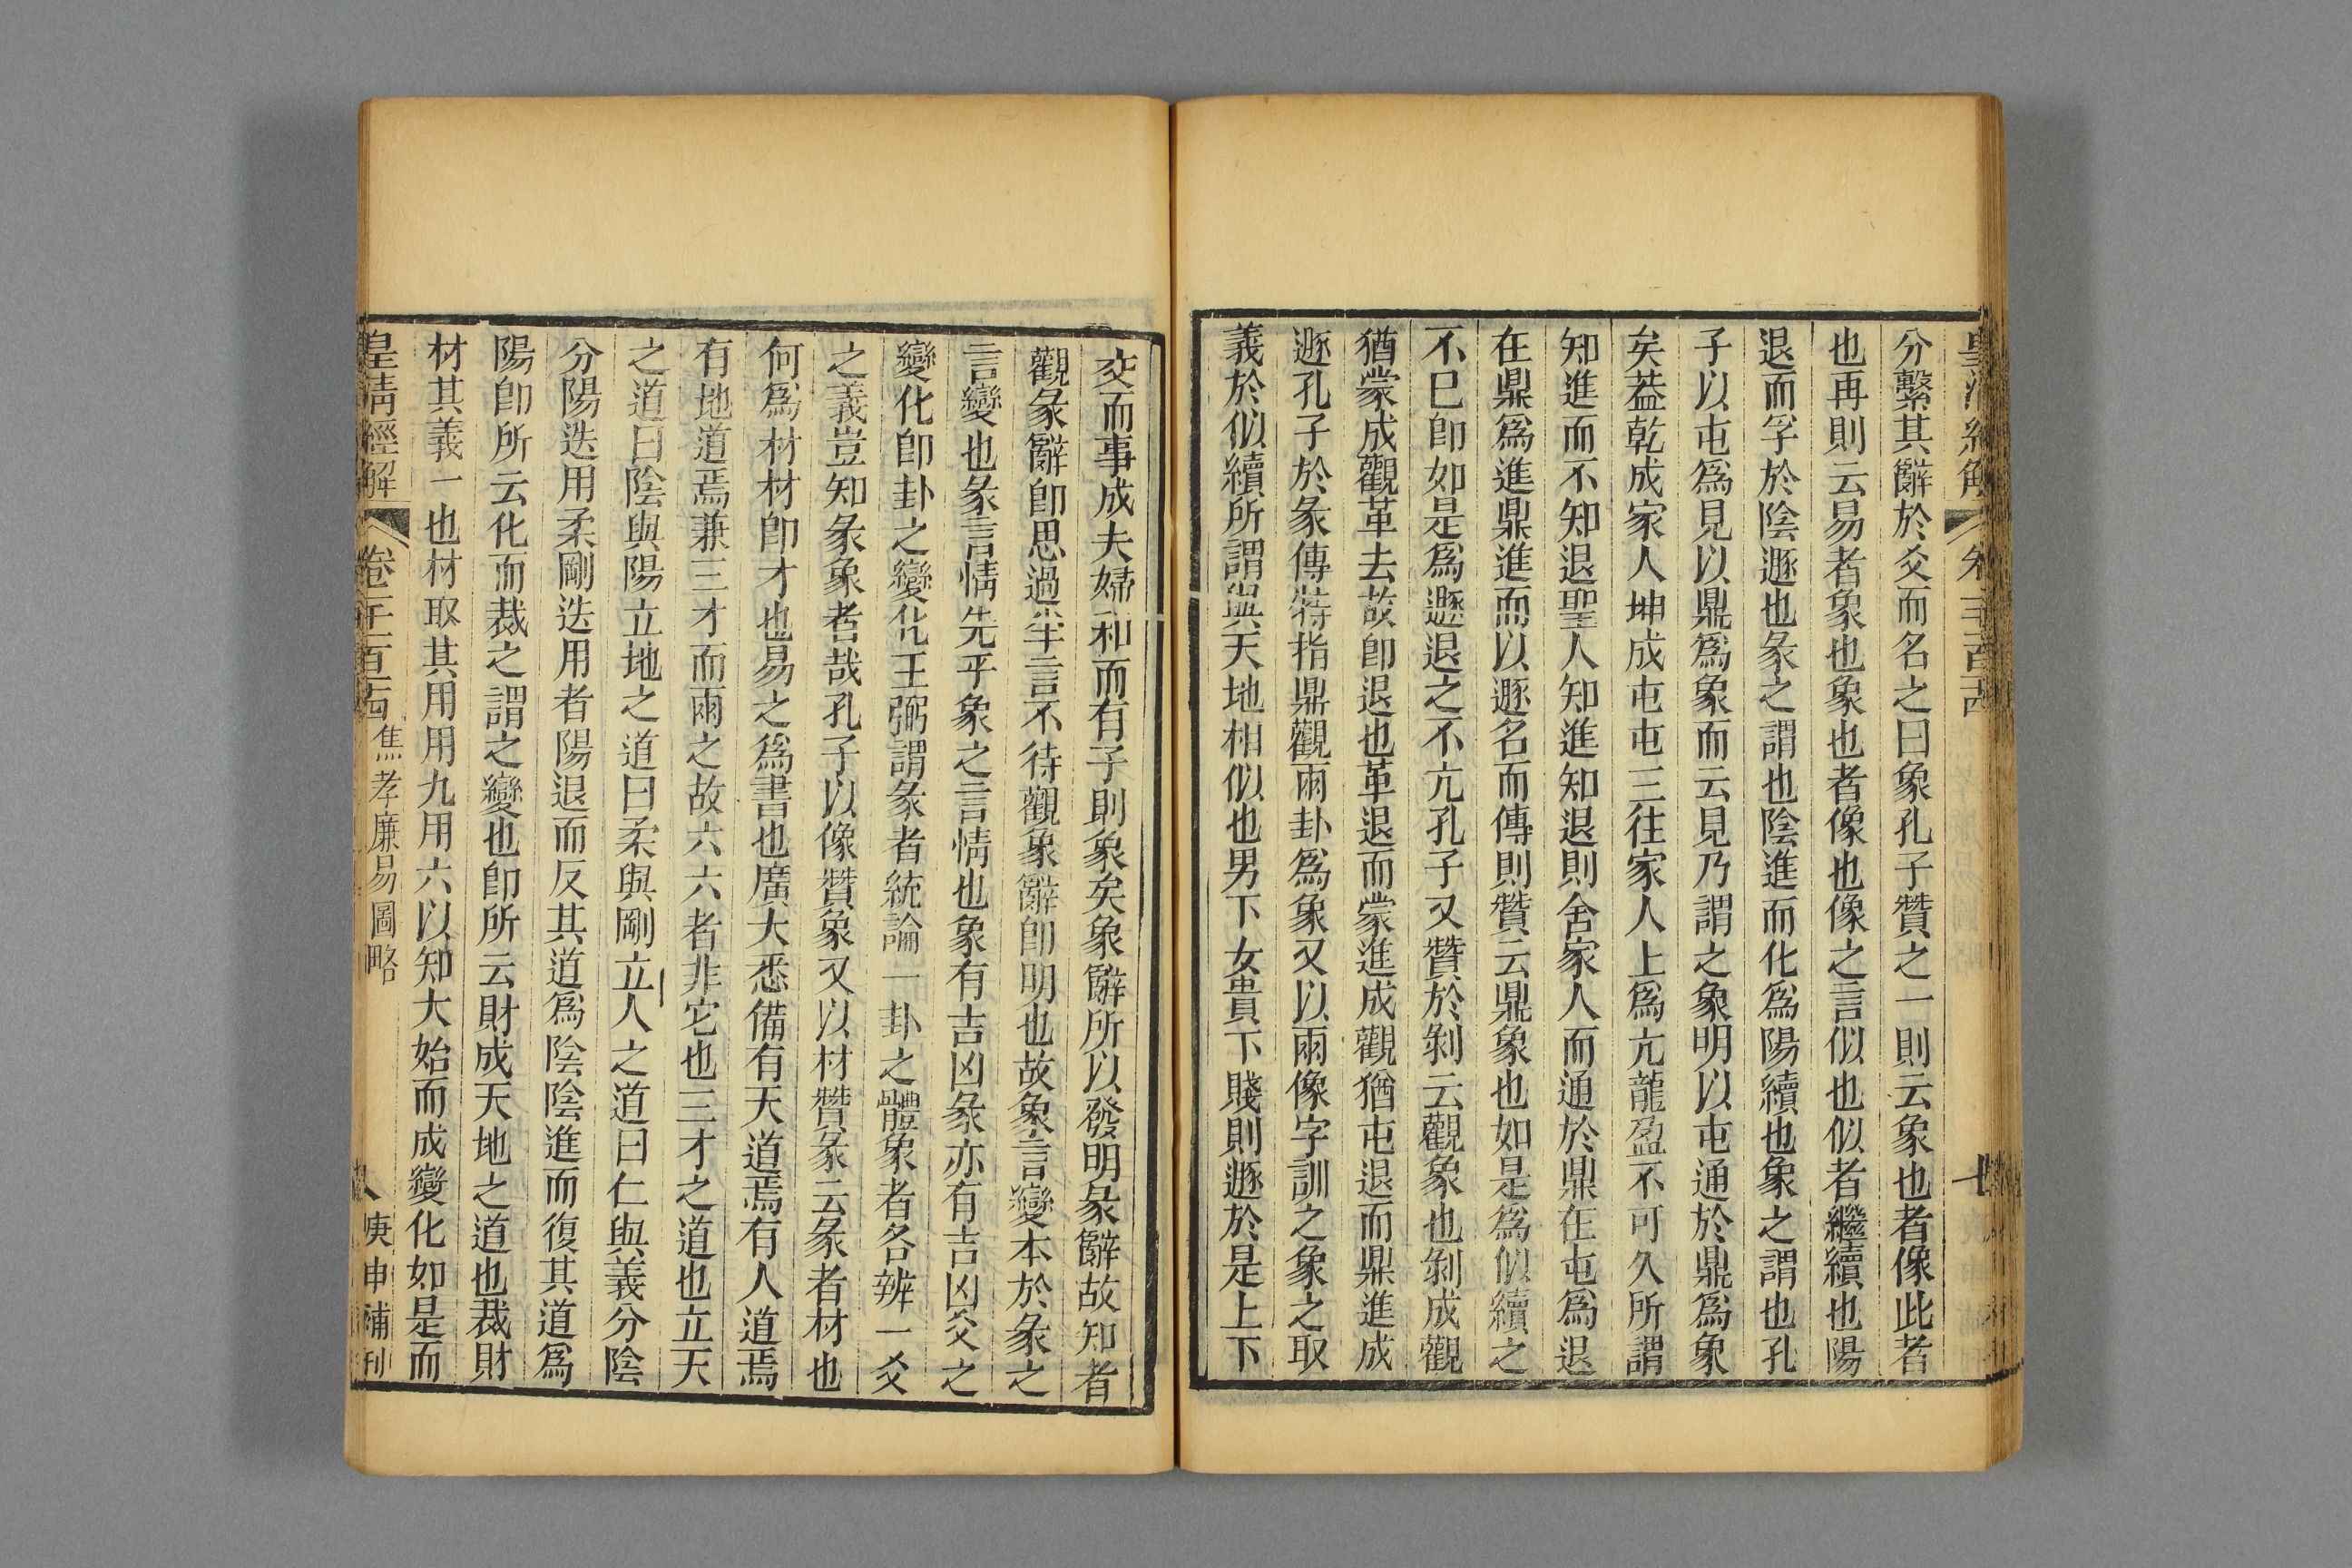 分繫其辭於爻而名之曰象孔子贊之一則云象也者像此者
也再則云易者象也象也者像也像之言似也似者繼續也陽
退而孚於陰遯也彖之謂也陰進而化爲陽續也象之謂也孔
子以屯爲見以鼎爲象而云見乃謂之象明以屯通於鼎爲象
矣葢乾成家人坤成屯屯三往家人上爲亢龍盈不可久所謂
知進而不知退聖人知進知退則舍家人而通於鼎在屯爲退
在鼎爲進鼎進而以遯名而傳則贊云鼎象也如是爲似續之
不已卽如是爲遯退之不亢孔子又贊於剝云觀象也剝成觀
猶蒙成觀革去故卽退也革退而蒙進成觀猶屯退而鼎進成
遯孔子於彖傳特指鼎觀兩卦爲象又以兩像字訓之象之取
義於似續所謂與天地相似也男下女貴下賤則遯於是上下
交而事成夫婦和而有子則象矣象辭所以發明彖辭故知者
觀彖辭卽思過半言不待觀象辭卽明也故象言變本於彖之
言變也彖言情先乎象之言情也象有吉凶彖亦有吉凶爻之
變化卽卦之變化王弼謂彖者統論一卦之體象者各辨一爻
之義豈知彖象者哉孔子以像贊象又以材贊彖云彖者材也
何爲材材卽才也易之爲書也廣大悉備有天道焉有人道焉
有地道焉兼三才而兩之故六六者非它也三才之道也立天
之道曰陰與陽立地之道曰柔與剛立人之道曰仁與義分陰
分陽迭用柔剛迭用者陽退而反其道爲陰陰進而復其道爲
陽卽所云化而裁之謂之變也卽所云財成天地之道也裁財
材其義一也材取其用用九用六以知大始而成變化如是而
皇清經解 卷一千一百十四 焦孝廉易圖略 八 庚申補刊